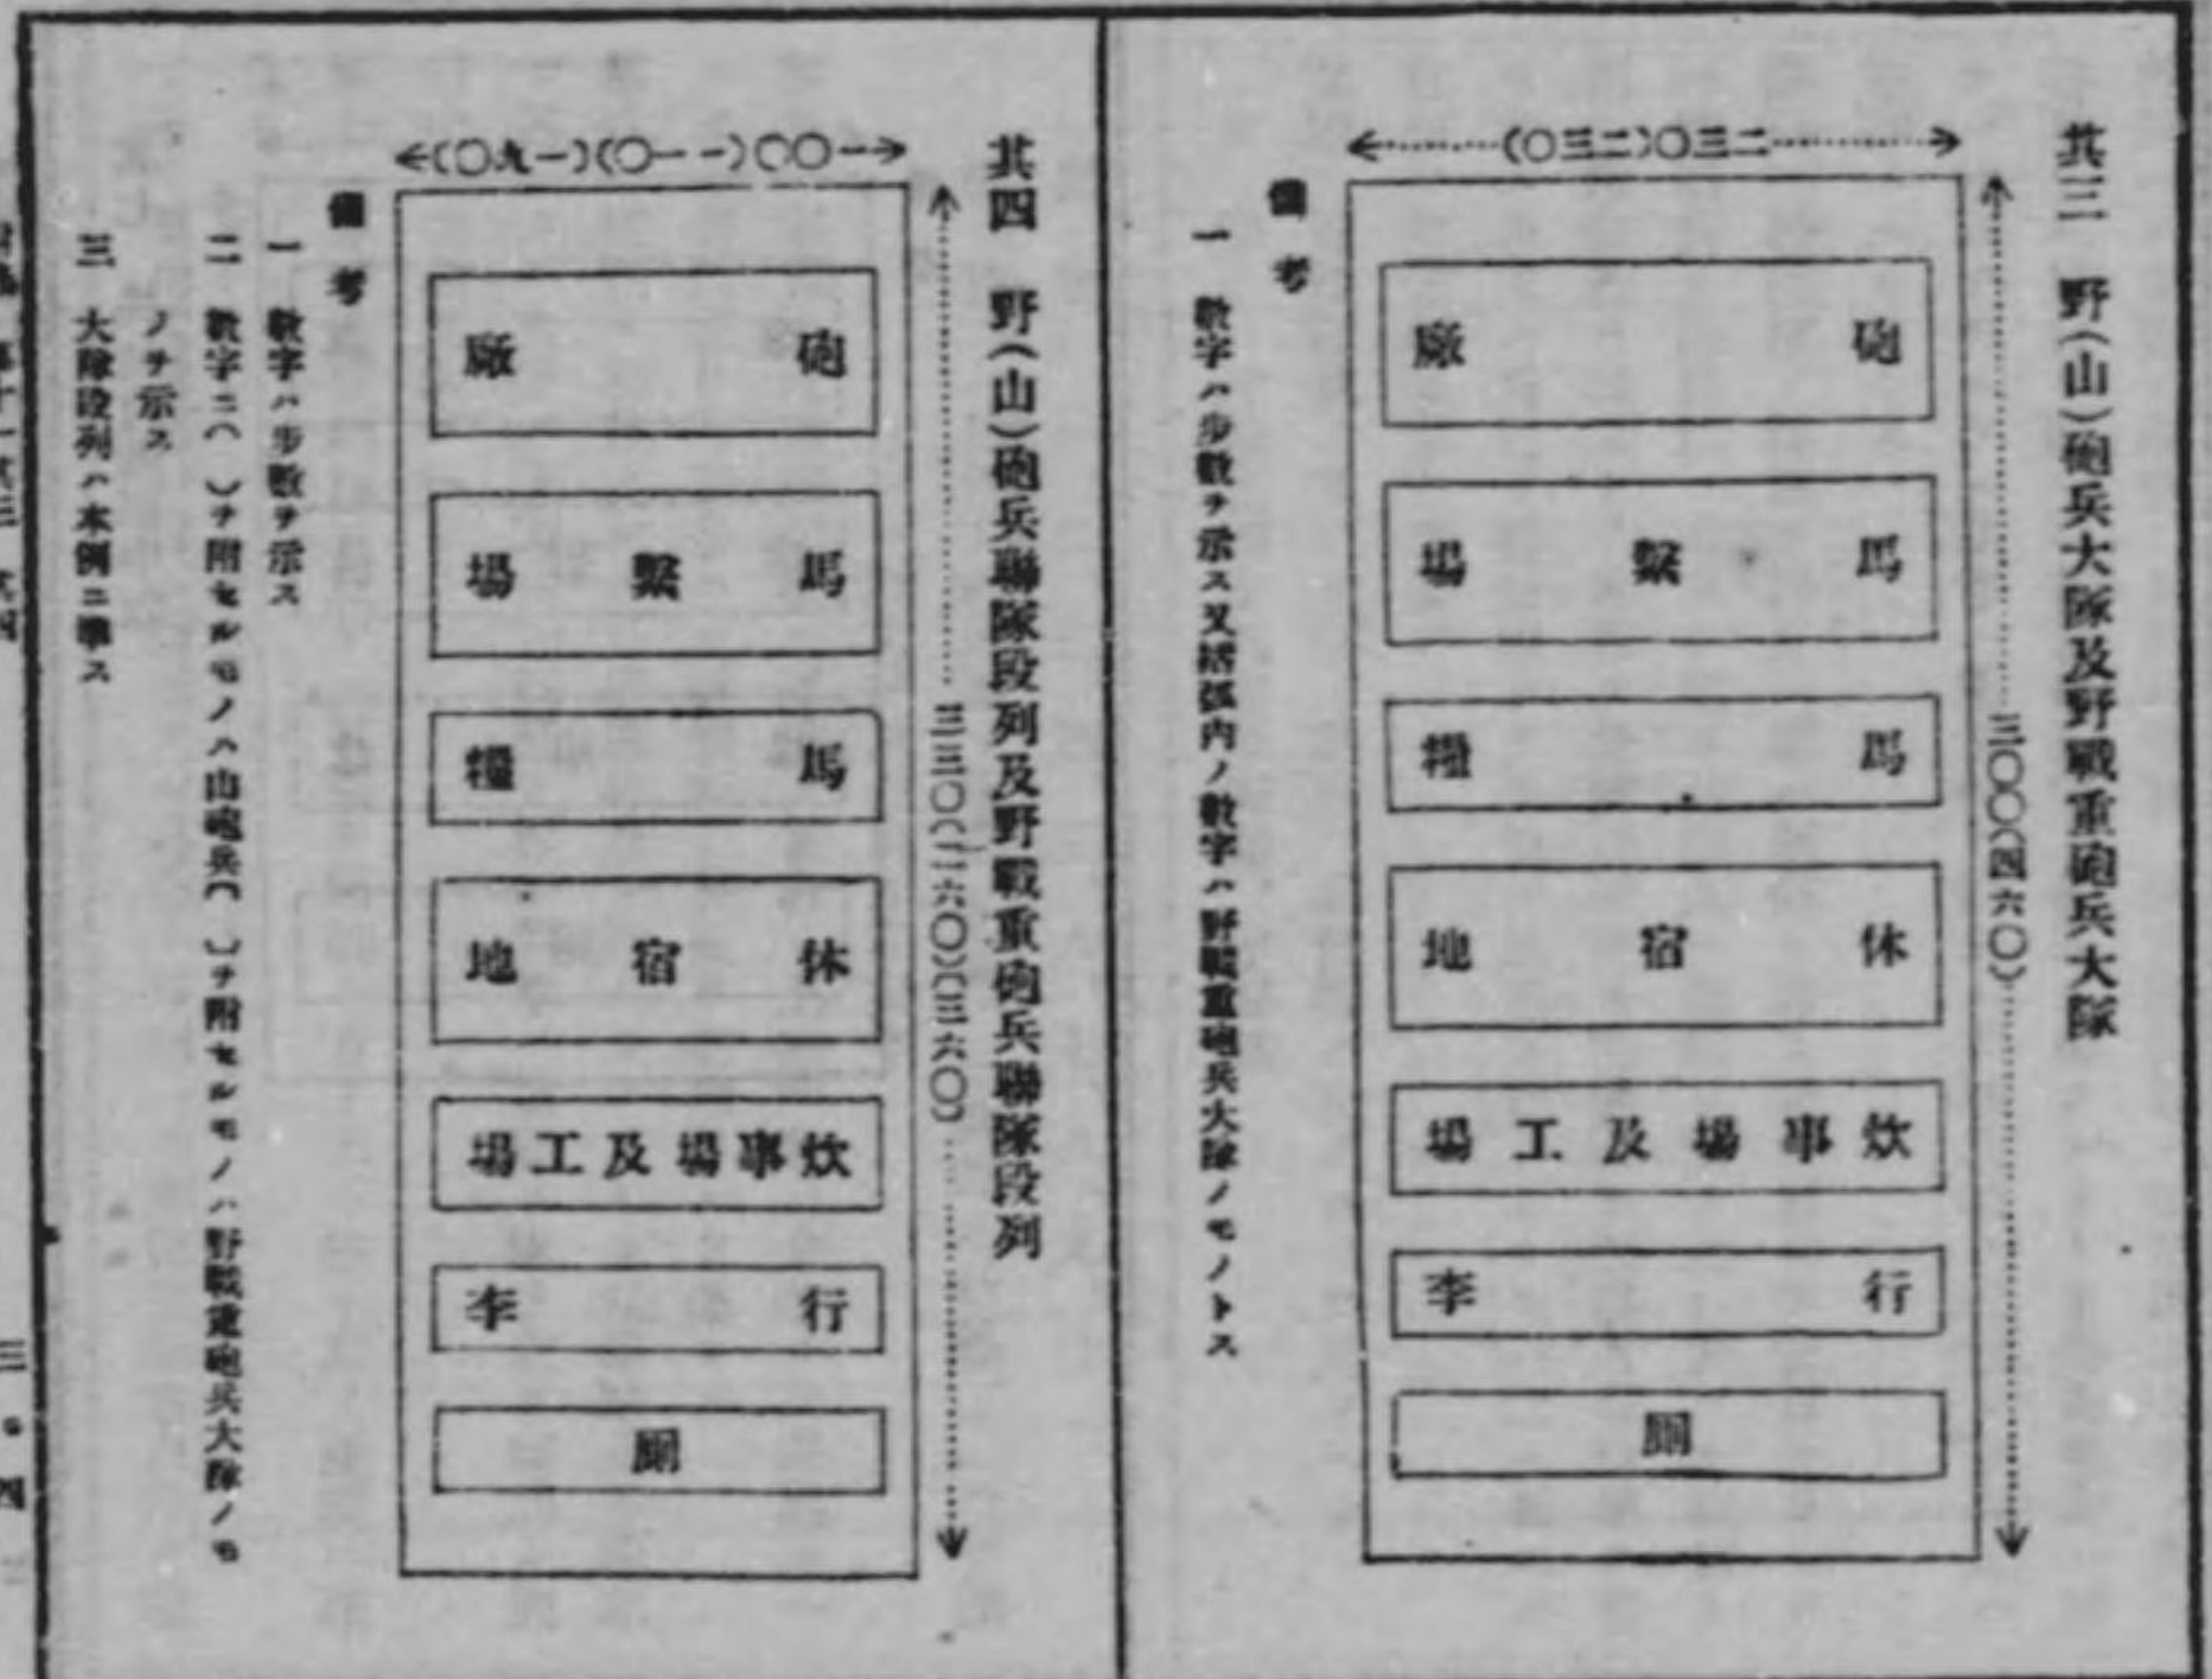 其三　野(山)砲兵大隊及野戰重砲兵大隊
三〇〇(四六〇)
二三〇(二三〇)
砲廠
馬繫場
馬糧
休宿地
炊事場及工場
行李
厠
備考
一　數字ハ步數ヲ示ス又括弧內ノ數字ハ野戰重砲兵大隊ノモノトス
其四　野(山)砲兵聯隊段列及野戰重砲兵聯隊段列
三三〇(二六〇)〔三六〇〕
一〇〇(一一〇)〔一九〇〕
砲廠
馬繫場
馬糧
休宿地
炊事場及工場
行李
厠
備考
一　數字ハ步數ヲ示ス
二　數字ニ(　)ヲ附セルモノハ山砲兵〔　〕ヲ附セルモノハ野戰重砲兵大隊ノモ
ノヲ示ス
三　大隊段列ハ本例ニ準ス
其三 其四
三〇四